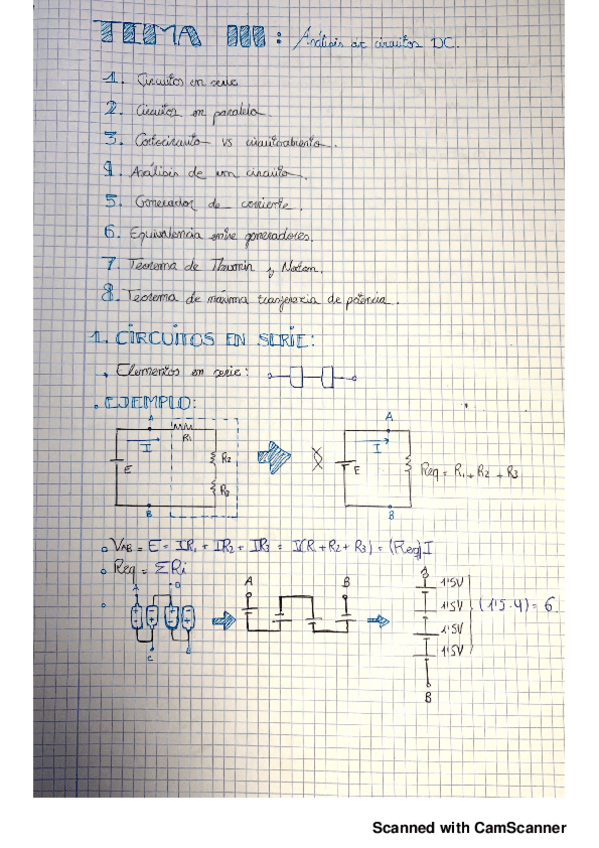 TEMA III: Análisis de circuitos DC.
1. Circuitos en serie
2. Circuitos en paralelo.
3. Cortocircuito vs circuitoabierto.
4. Análisis de un circuito.
5. Generador de corriente.
6. Equivalencia entre generadores.
7. Teorema de Thevenin y Norton.
8. Teorema de máxima transferencia de potencia.
1. CIRCUITOS EN SERIE:
. Elementos en serie:
. EJEMPLO:
A
R1
I
E
R2
R3
B
A
I
E
Req = R1 + R2 + R3
B
VAB = E = IR1 + IR2 + IR3 = I(R1 + R2 + R3) = (Req)I
Req = ΣRi
A
B
A
1'5V
1'5V
1'5V
1'5V
(1'5·4) = 6
B
Scanned with CamScanner